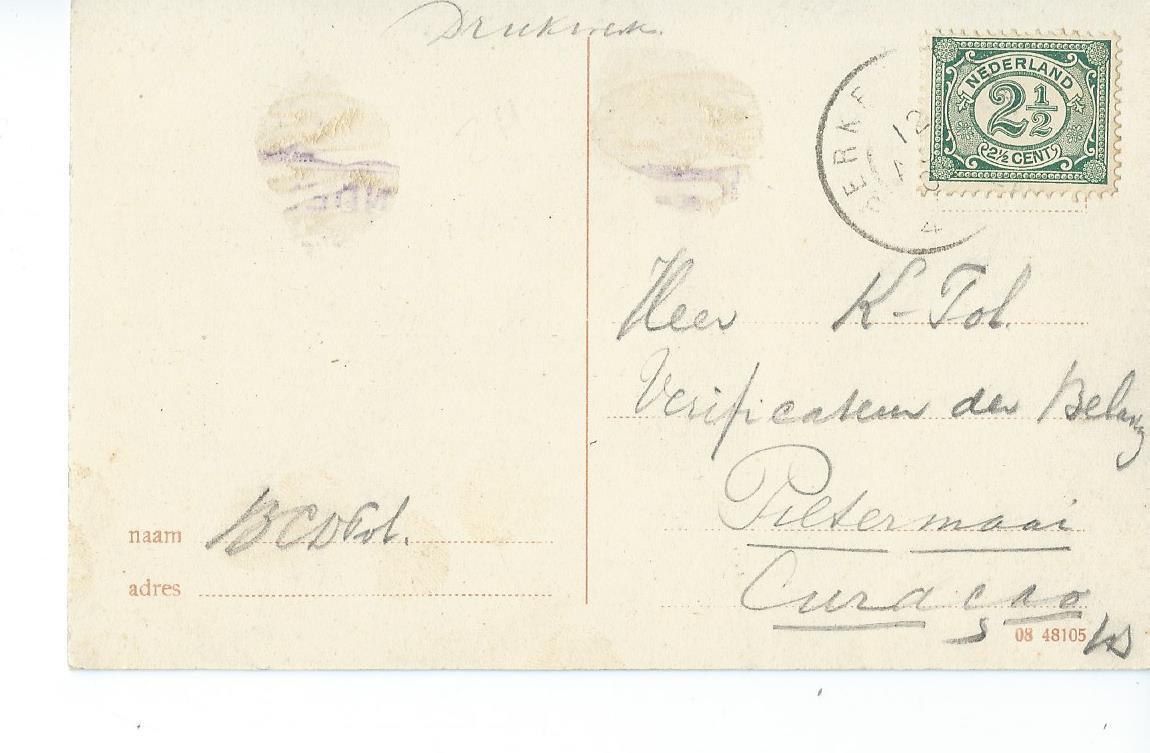 Drukwerk
NEDERLAND
2 1/2
2½ CENT
12
4
NDE
Heer K-Tol.
Verificateur der Belang
Pietermaai
Curaçao
naam BCDTol.
adres
08 48105